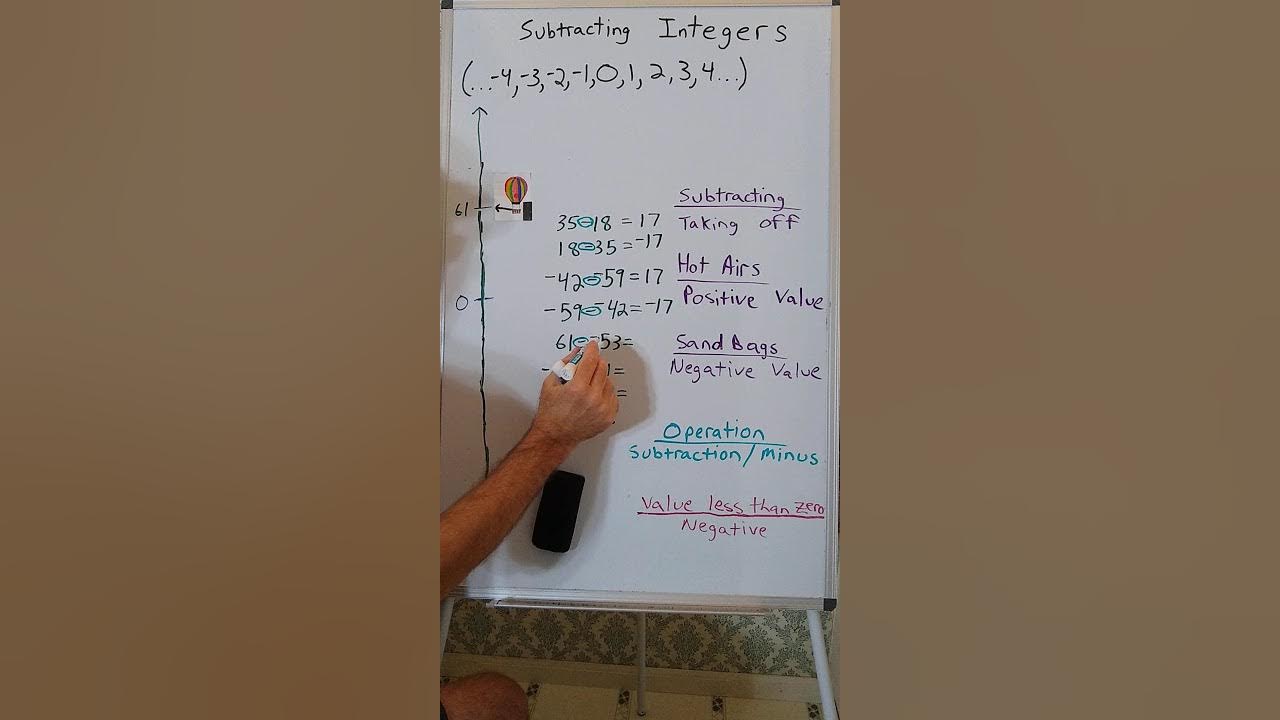 Subtracting Integers
(...-4,-3,-2,-1,0,1,2,3,4...)
61
0
35-18 = 17
18-35=-17
-42--59=17
-59--42=-17
61--53=
Subtracting
Taking off
Hot Airs
Positive Value
Sand Bags
Negative Value
Operation
Subtraction/Minus
Value less than zero
Negative